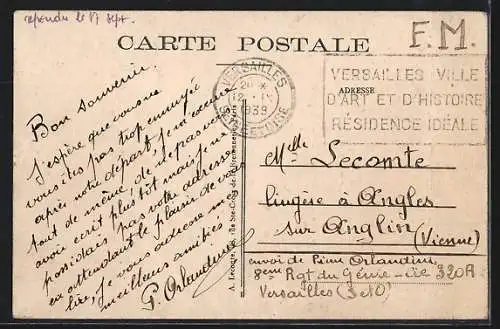 rependu le 17 sept.
CARTE POSTALE
F.M.
VERSAILLES
20 X
12 IX
1939
SEINE ET OISE
VERSAILLES VILLE
D'ART ET D'HISTOIRE
RÉSIDENCE IDÉALE
ADRESSE
Bon souvenir.
J'espère que vous ne
vous êtes pas trop ennuyé
après notre départ, je m'excuse
tout de même, de ne pas vous
avoir écrit plus tôt mais je ne
possédais pas votre adresse
en attendant le plaisir de vous
lire, je vous adresse mes
meilleurs amitiés
P. Orlandini
A. Leconte,
Melle Lecomte
lingère à Angles
sur Anglin (Vienne)
envoi de Pierre Orlandini
8eme Rgt du Génie - Cie 320 R
Versailles (S et O)